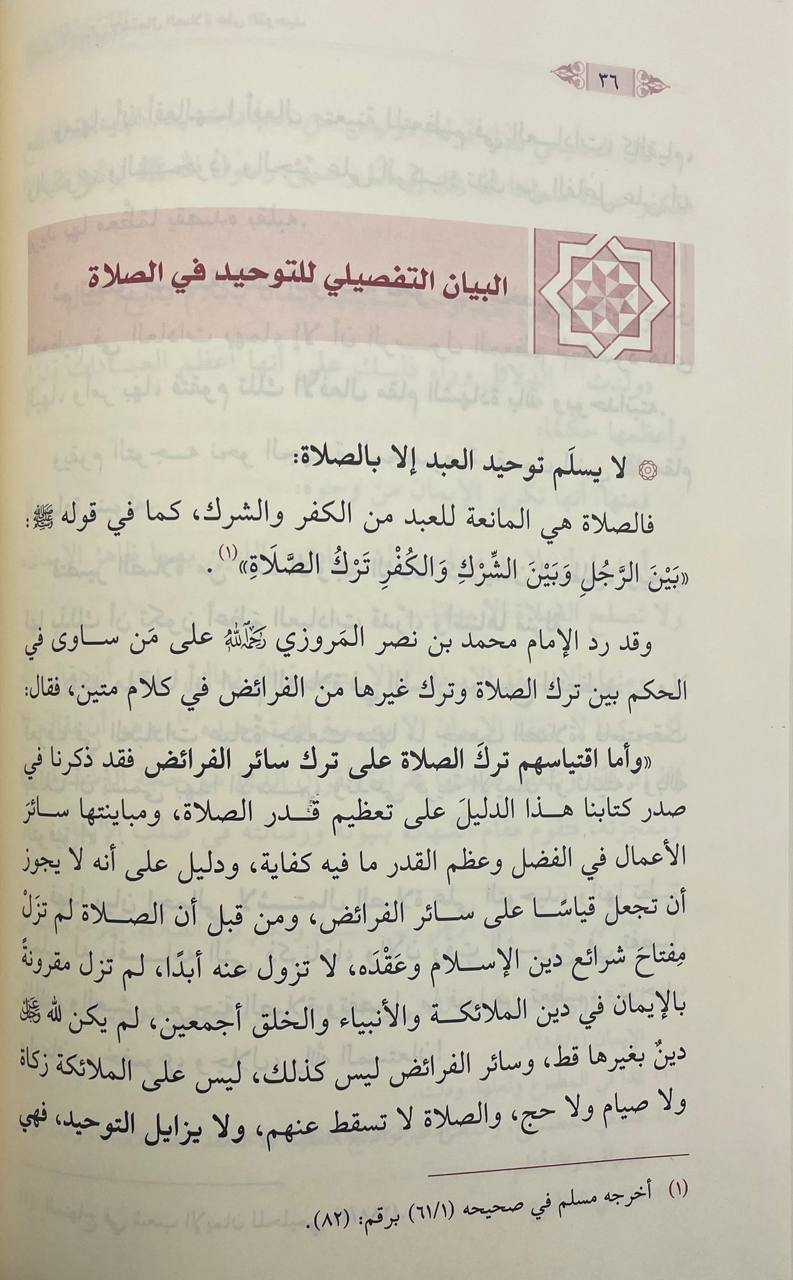 ٣٦
البيان التفصيلي للتوحيد في الصلاة
لا يسلَم توحيد العبد إلا بالصلاة:
فالصلاة هي المانعة للعبد من الكفر والشرك، كما في قوله ﷺ:
«بَيْنَ الرَّجُلِ وَبَيْنَ الشِّرْكِ وَالكُفْرِ تَرْكُ الصَّلَاةِ»(١).
وقد رد الإمام محمد بن نصر المَروزي رَحِمَهُ اللهُ على مَن ساوى في
الحكم بين ترك الصلاة وترك غيرها من الفرائض في كلام متين، فقال:
«وأما اقتياسهم تركَ الصلاة على ترك سائر الفرائض فقد ذكرنا في
صدر كتابنا هذا الدليلَ على تعظيم قدر الصلاة، ومباينتها سائرَ
الأعمال في الفضل وعظم القدر ما فيه كفاية، ودليل على أنه لا يجوز
أن تجعل قياسًا على سائر الفرائض، ومن قبل أن الصلاة لم تزَلْ
مِفتاحَ شرائع دين الإسلام وعَقْدَه، لا تزول عنه أبدًا، لم تزل مقرونةً
بالإيمان في دين الملائكة والأنبياء والخلق أجمعين، لم يكن لله عَزَّوَجَلَّ
دينٌ بغيرها قط، وسائر الفرائض ليس كذلك، ليس على الملائكة زكاة
ولا صيام ولا حج، والصلاة لا تسقط عنهم، ولا يزايل التوحيد، فهي
(١) أخرجه مسلم في صحيحه (٦١/١) برقم: (٨٢).